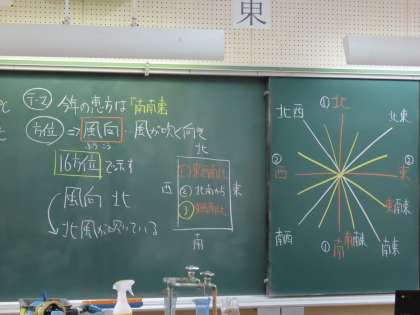 東
テーマ 今年の恵方は「南南東」
方位 ⇒ 風向 風が吹く向き
ふうこう
16方位で示す
風向 北
北風が吹いている
北
西
東
南
① 東西南北
② 北南から
③
北
①
北西
北東
②
西
②
東
東南東
南西
①
南
南南東
南東